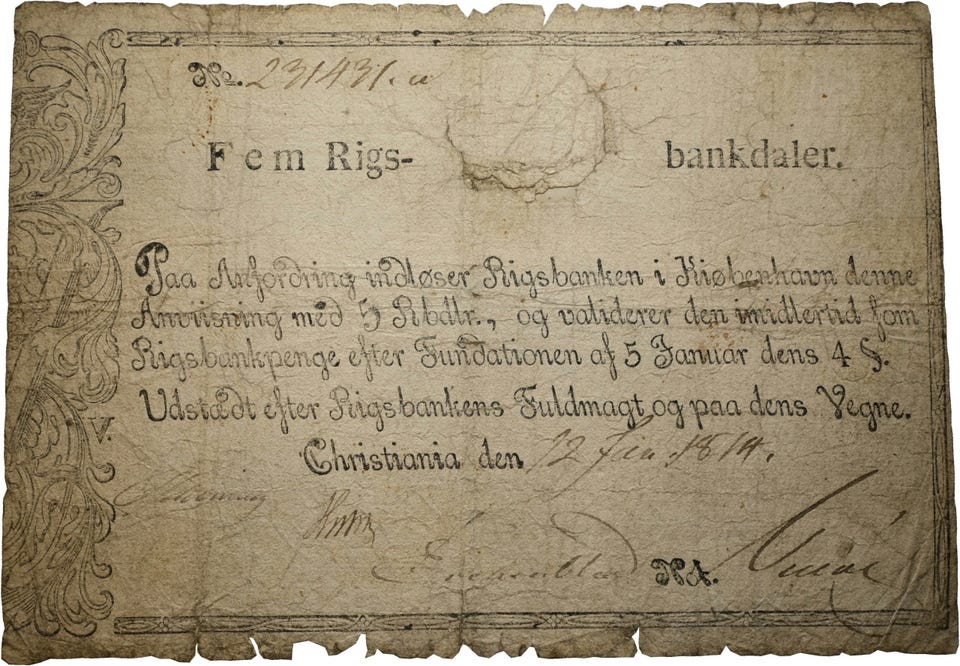 No. 231431. a
Fem Rigs- bankdaler.
Paa Anfordring indløser Rigsbanken i Kiøbenhavn denne
Anviisning med 5 Rbdlr., og validerer den imidlertid som
Rigsbankpenge efter Fundationen af 5 Januar dens 4 §.
Udstædt efter Rigsbankens Fuldmagt og paa dens Vegne.
V.
Christiania den 12 Jan. 1814.
N A.